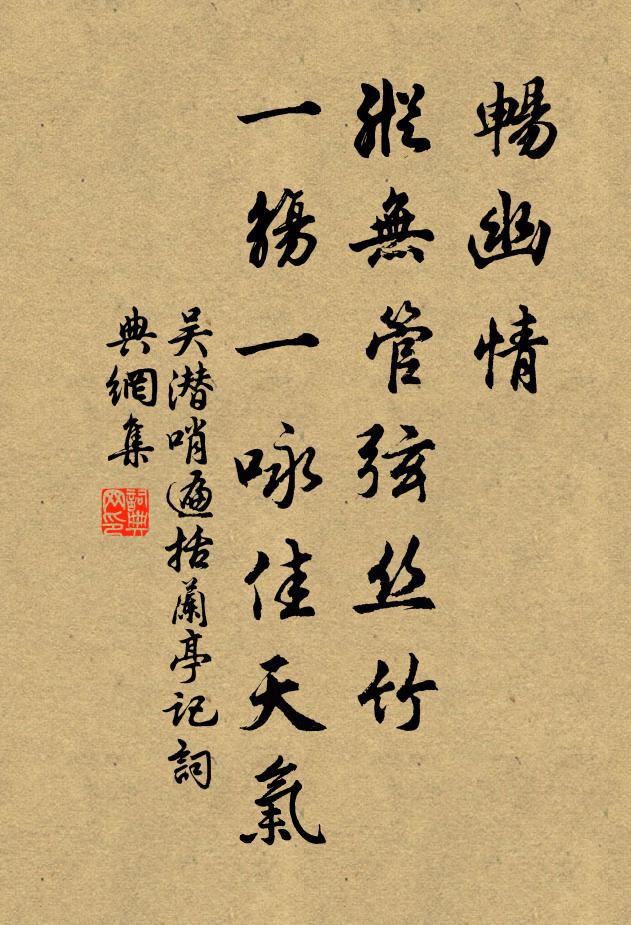 暢幽情
縱無管弦丝竹
一觴一咏佳天氣
吴潜哨遍括蘭亭記詞
典網集
詞典网印